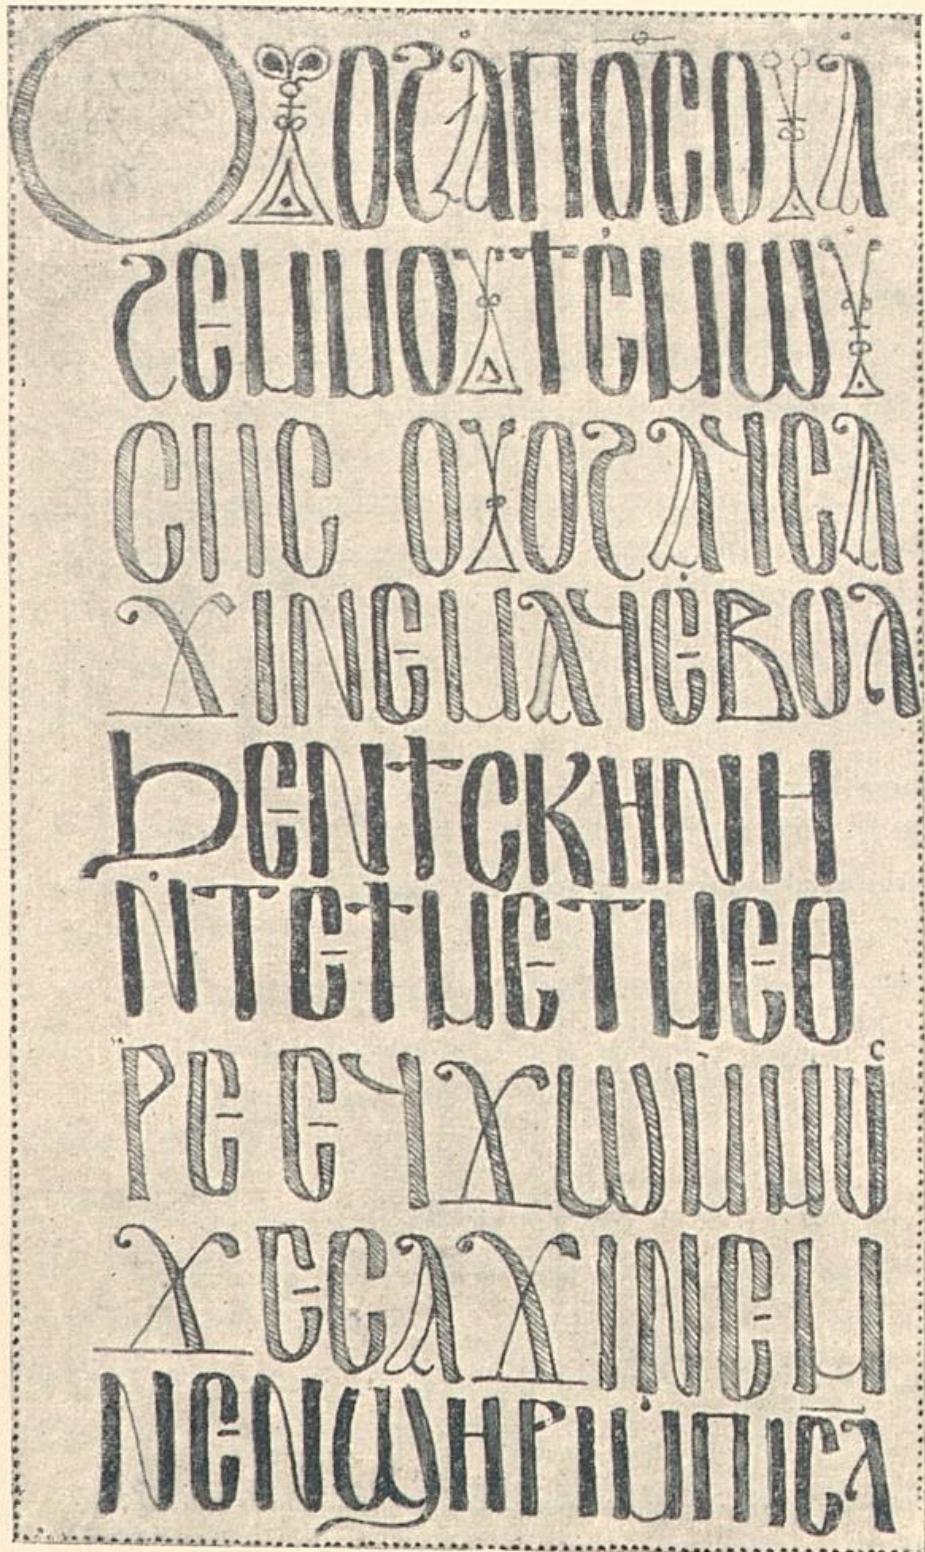 ⲞⲨⲞϨⲀ̀ⲠϬ̅ⲤⲞⲨⲀ̀
ϨⲈⲘⲘⲞⲨϮⲈ̀ⲘⲰⲨ̀
ⲤⲎⲤ ⲞⲨⲞϨⲀϤⲤⲀ
ϪⲒⲚⲈⲘⲀϤⲈ̀ⲂⲞⲖ
ϦⲈⲚϮⲤⲔⲎⲚⲎ
Ⲛ̀ⲦⲈϮⲘⲈⲦⲘⲈⲐ
ⲢⲈ ⲈϤϪⲰⲘ̀ⲘⲞⲤ
ϪⲈⲤⲀϪⲒⲚⲈⲘ
ⲚⲈⲚϢⲎⲢⲒⲘ̀ⲠⲒⲤ̅Ⲗ̅